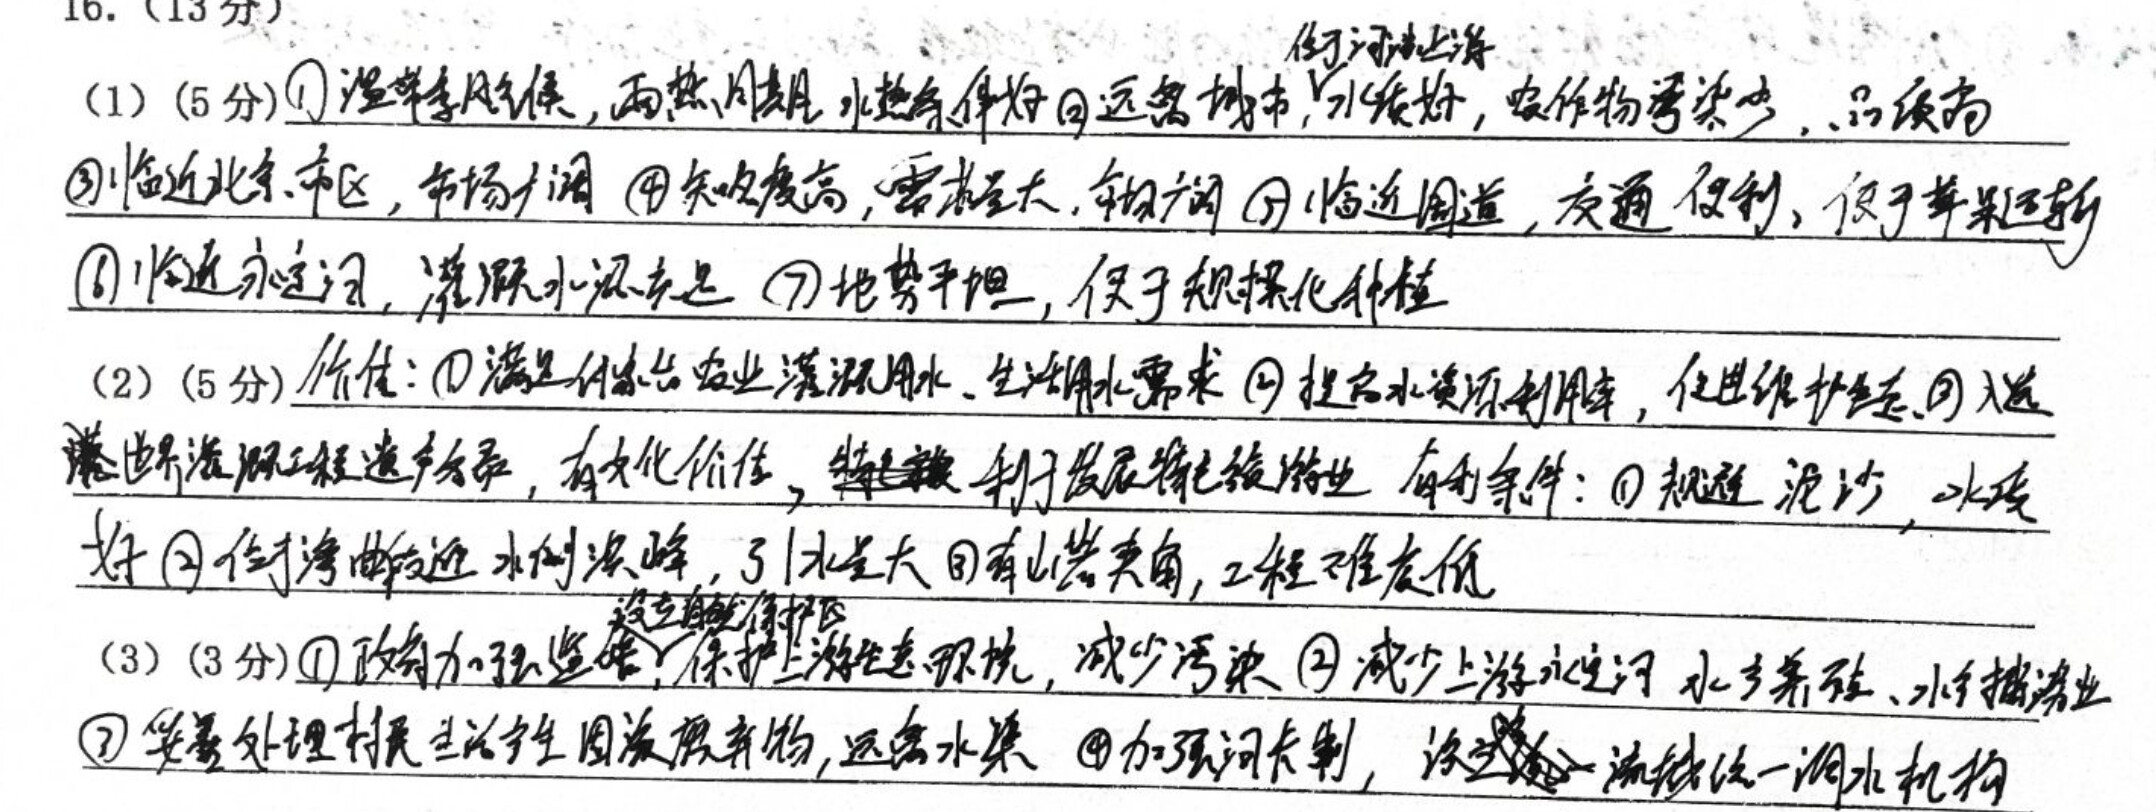 16.（13分）
位于河流上游
（1）（5分）①温带季风气候，雨热同期，水热条件好②远离城市，水质好，农作物污染少，品质高
③临近北京市区，市场广阔 ④知名度高，需求量大，市场广阔 ⑤临近国道，交通便利，便于苹果运输
⑥临近永定河，灌溉水源充足 ⑦地势平坦，便于规模化种植
（2）（5分）价值：①满足 农业灌溉用水、生活用水需求 ②提高水资源利用率，促进维护生态 ③入选
世界灌溉工程遗产名录，有文化价值， 利于发展特色旅游业 有利条件：①规避泥沙，水质
好 ②位于弯曲 迎水侧 ，引水量大 ③有山岩夹角，工程难度低
设立自然保护区
（3）（3分）①政府加强监管，保护上游生态环境，减少污染 ②减少上游永定河水产养殖、水产捕捞业
③妥善处理村民生活产生固液废弃物，远离水渠 ④加强河长制，设立 流域统一调水机构